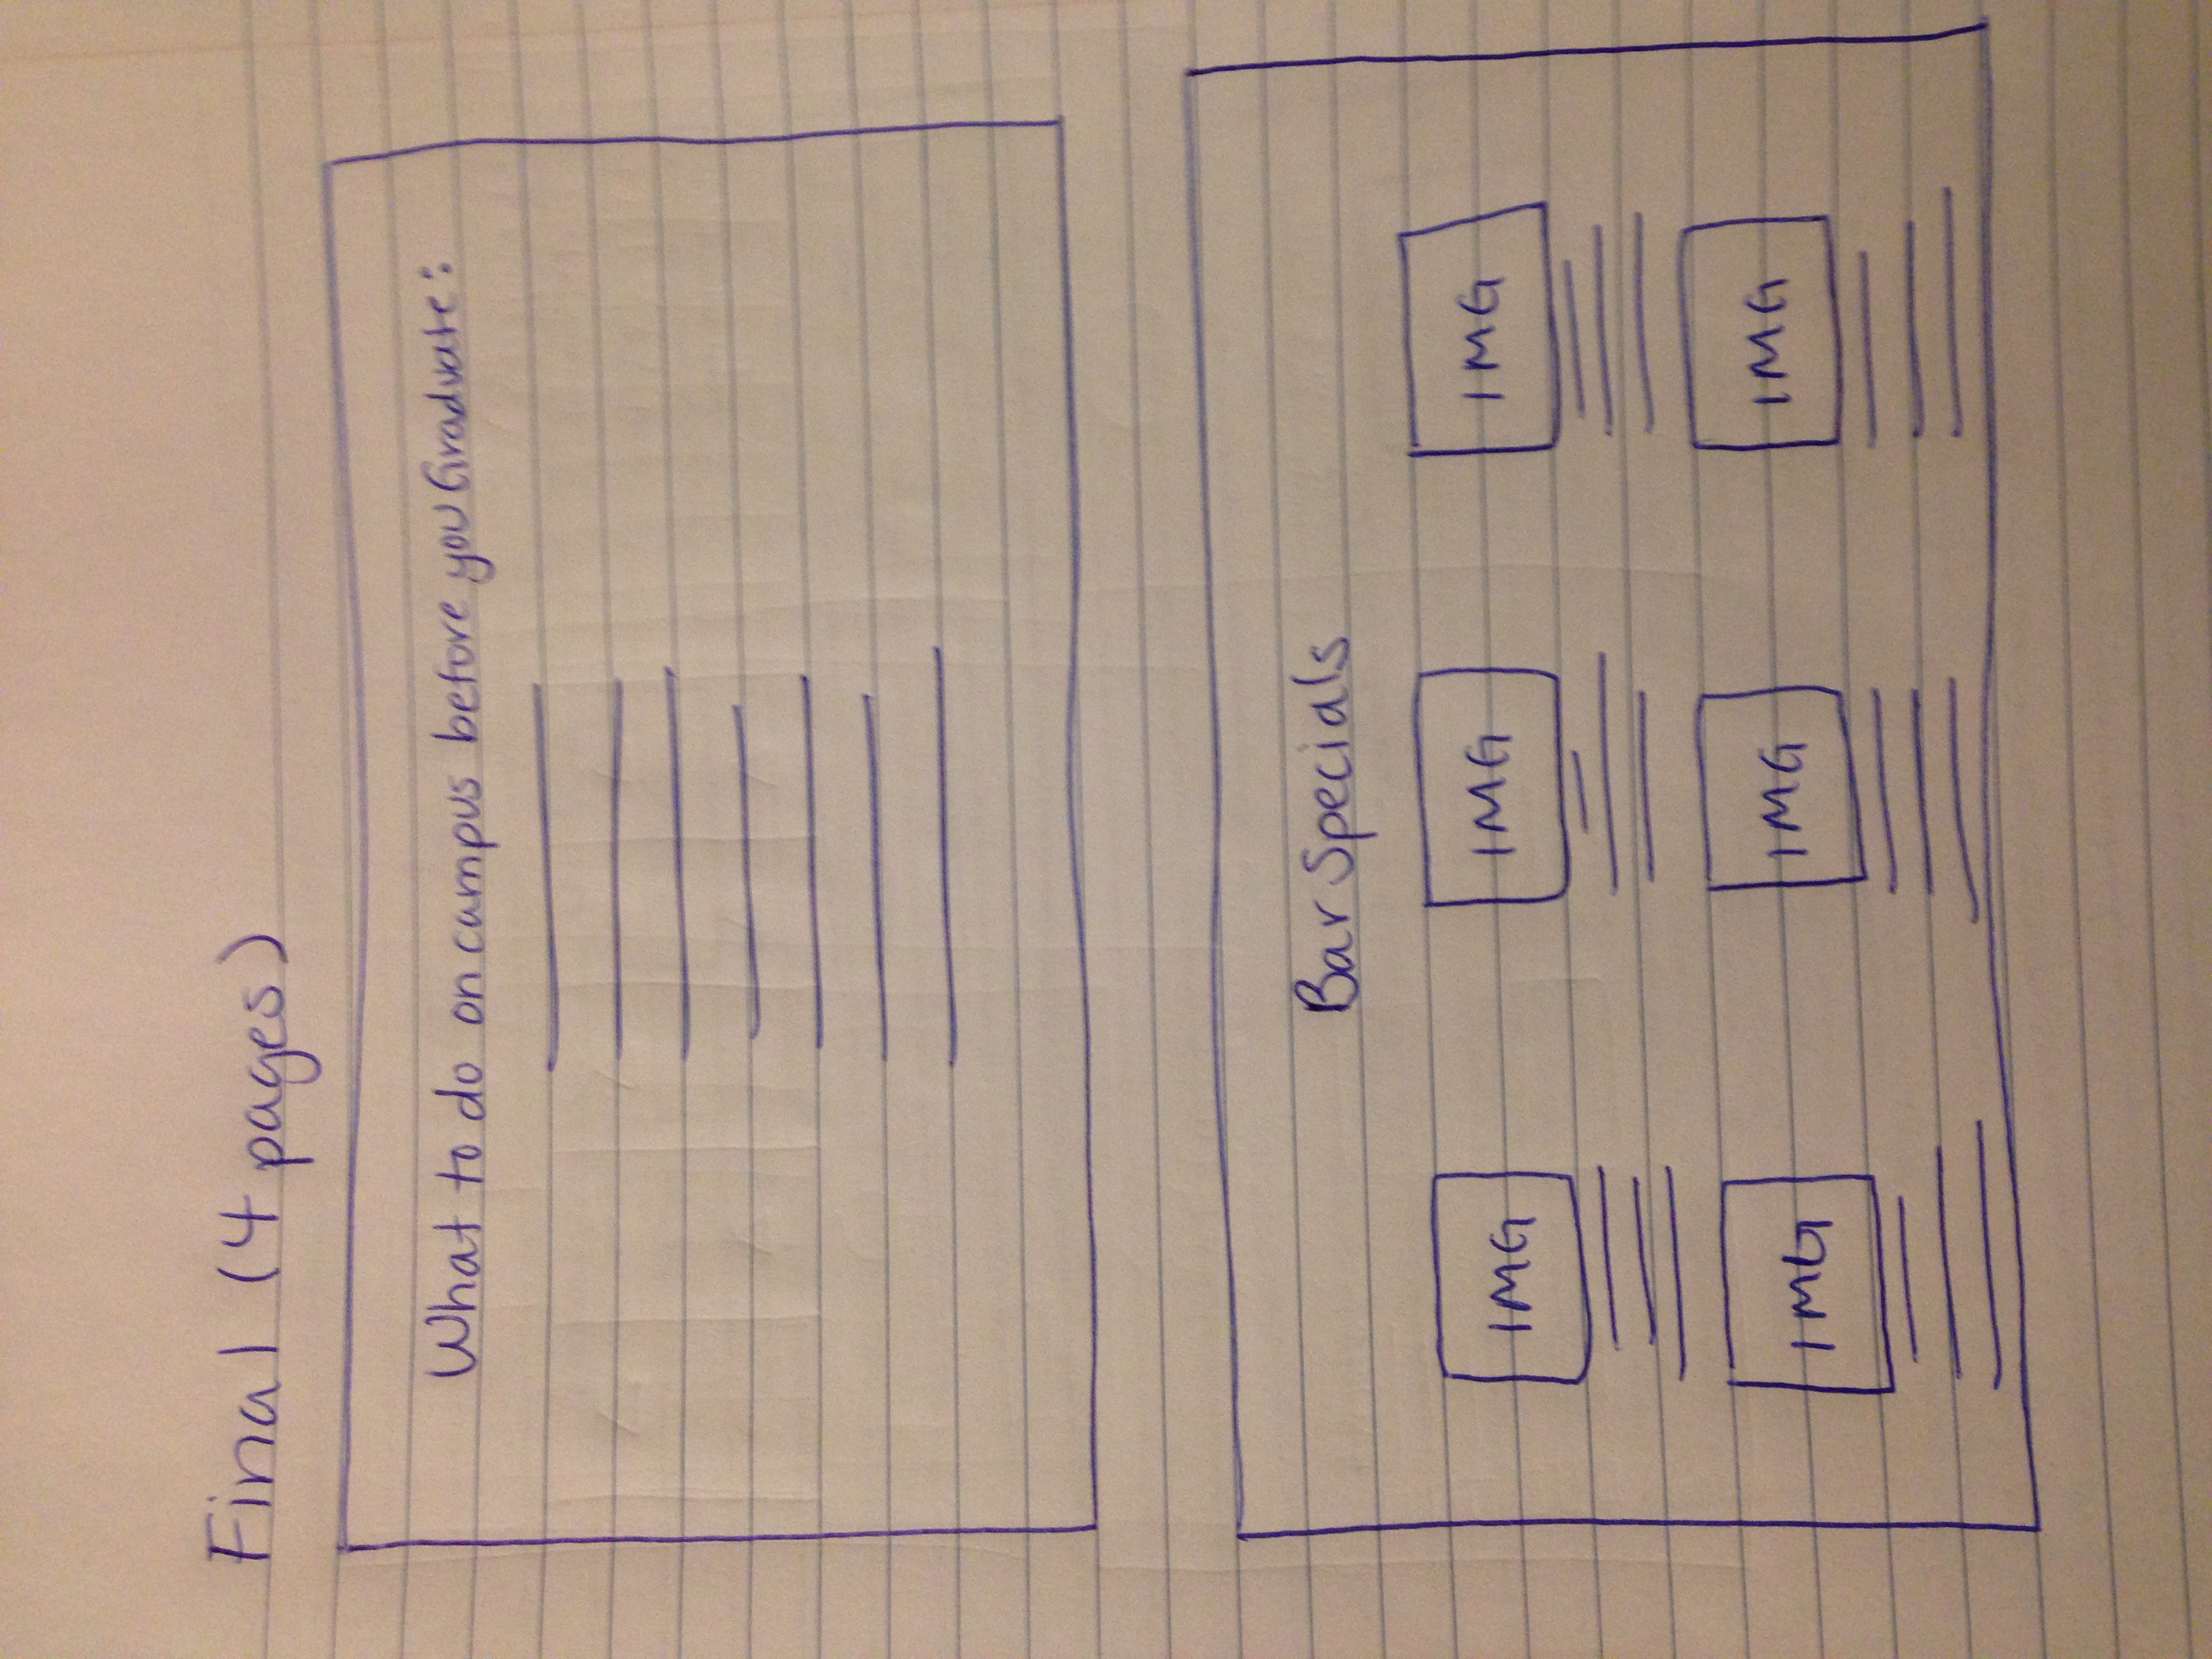 Final (4 pages)
What to do on campus before you Graduate:
Bar Specials
IMG IMG IMG
IMG IMG IMG